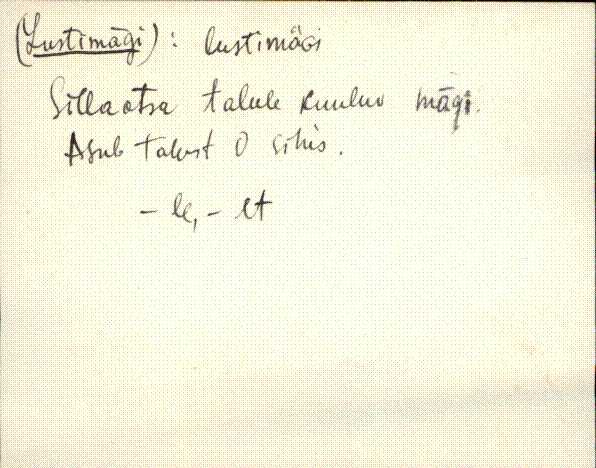 (Lustimägi): lustimägi
Sillaotsa talule kuuluv mägi.
Asub talust O sihis.
- le, - lt